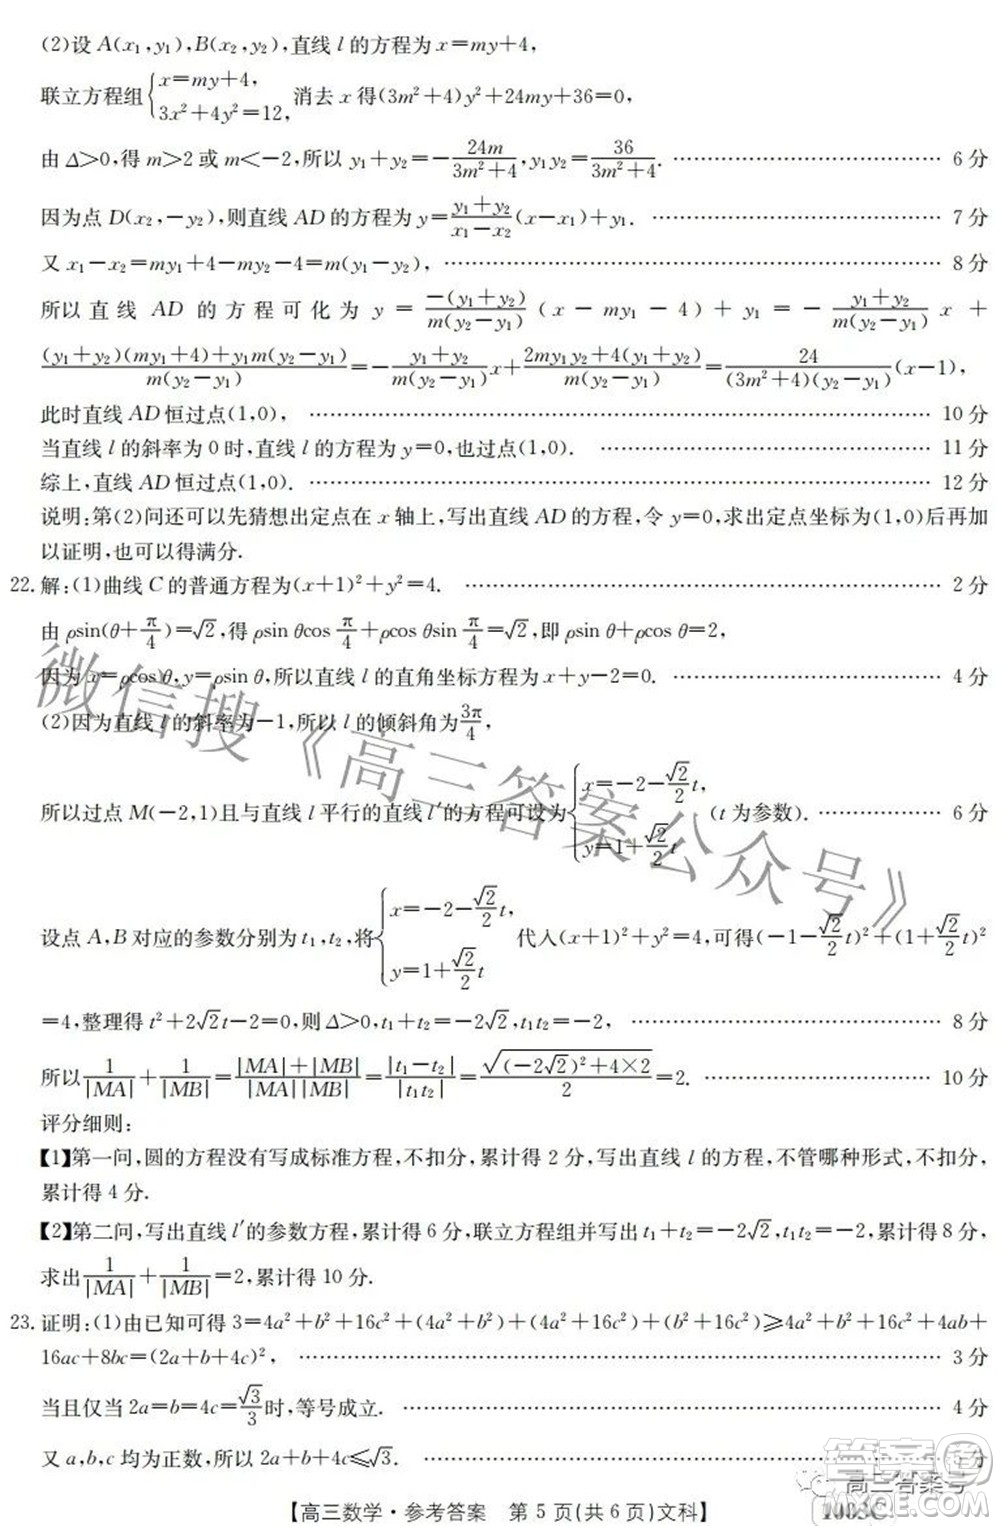 (2)设 A(x₁,y₁),B(x₂,y₂),直线 l 的方程为 x=my+4,
联立方程组{x=my+4, 3x²+4y²=12, 消去 x 得(3m²+4)y²+24my+36=0,
由 Δ>0,得 m>2 或 m<-2,所以 y₁+y₂=-24m/(3m²+4),y₁y₂=36/(3m²+4). ………… 6 分
因为点 D(x₂,-y₂),则直线 AD 的方程为 y=(y₁+y₂)/(x₁-x₂)(x-x₁)+y₁. ………… 7 分
又 x₁-x₂=my₁+4-my₂-4=m(y₁-y₂), ………… 8 分
所以直线 AD 的方程可化为 y=-(y₁+y₂)/(m(y₂-y₁))(x-my₁-4)+y₁=-(y₁+y₂)/(m(y₂-y₁))x+
((y₁+y₂)(my₁+4)+y₁m(y₂-y₁))/(m(y₂-y₁))=-(y₁+y₂)/(m(y₂-y₁))x+(2my₁y₂+4(y₁+y₂))/(m(y₂-y₁))=24/((3m²+4)(y₂-y₁))(x-1),
此时直线 AD 恒过点(1,0), ………… 10 分
当直线 l 的斜率为 0 时,直线 l 的方程为 y=0,也过点(1,0). ………… 11 分
综上,直线 AD 恒过点(1,0). ………… 12 分
说明:第(2)问还可以先猜想出定点在 x 轴上,写出直线 AD 的方程,令 y=0,求出定点坐标为(1,0)后再加
以证明,也可以得满分.
22.解:(1)曲线 C 的普通方程为(x+1)²+y²=4. ………… 2 分
由 ρsin(θ+π/4)=√2,得 ρsin θcos π/4+ρcos θsin π/4=√2,即 ρsin θ+ρcos θ=2,
因为 x=ρcos θ,y=ρsin θ,所以直线 l 的直角坐标方程为 x+y-2=0. ………… 4 分
(2)因为直线 l 的斜率为-1,所以 l 的倾斜角为3π/4,
所以过点 M(-2,1)且与直线 l 平行的直线 l′的方程可设为{x=-2-√2/2 t, y=1+√2/2 t (t 为参数). ………… 6 分
设点 A,B 对应的参数分别为 t₁,t₂,将{x=-2-√2/2 t, y=1+√2/2 t 代入(x+1)²+y²=4,可得(-1-√2/2 t)²+(1+√2/2 t)²
=4,整理得 t²+2√2t-2=0,则 Δ>0,t₁+t₂=-2√2,t₁t₂=-2, ………… 8 分
所以1/|MA|+1/|MB|=(|MA|+|MB|)/(|MA||MB|)=|t₁-t₂|/|t₁t₂|=√((-2√2)²+4×2)/2=2. ………… 10 分
评分细则:
【1】第一问,圆的方程没有写成标准方程,不扣分,累计得 2 分,写出直线 l 的方程,不管哪种形式,不扣分,
累计得 4 分.
【2】第二问,写出直线 l′的参数方程,累计得 6 分,联立方程组并写出 t₁+t₂=-2√2,t₁t₂=-2,累计得 8 分,
求出1/|MA|+1/|MB|=2,累计得 10 分.
23.证明:(1)由已知可得 3=4a²+b²+16c²+(4a²+b²)+(4a²+16c²)+(b²+16c²)≥4a²+b²+16c²+4ab+
16ac+8bc=(2a+b+4c)², ………… 3 分
当且仅当 2a=b=4c=√3/3时,等号成立. ………… 4 分
又 a,b,c 均为正数,所以 2a+b+4c≤√3. ………… 5 分
【高三数学·参考答案 第 5 页(共 6 页)文科】
1003C
微信搜《高三答案公众号》
高三答案号
答案圈